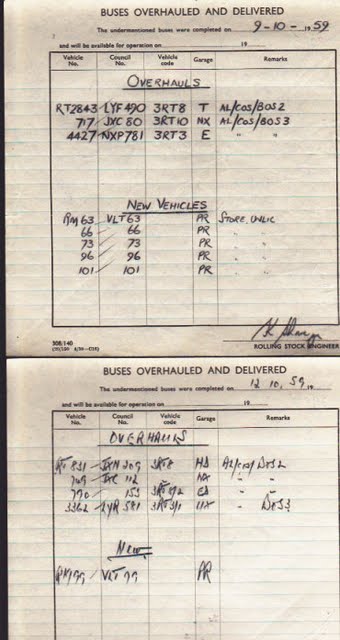 BUSES OVERHAULED AND DELIVERED
The undermentioned buses were completed on 9-10-1959
and will be available for operation on 19
Vehicle No. Council No. Vehicle code Garage Remarks
OVERHAULS
RT2843 LYF490 3RT8 T AL/COS/BOS2
717 JXC 80 3RT10 NX AL/COS/BOS3
4427 NXP781 3RT3 E " "
NEW VEHICLES
RM63 VLT63 PR STORE, UNLIC
66 66 PR " "
73 73 PR " "
96 96 PR " "
101 101 PR " "
208/140
ROLLING STOCK ENGINEER
BUSES OVERHAULED AND DELIVERED
The undermentioned buses were completed on 12 10, 59, 19
and will be available for operation on 19
Vehicle No. Council No. Vehicle code Garage Remarks
OVERHAULS
RT 831 JXN 209 3RT8
JXC 112 "
770 153 3RT8/2 "
3362 LYR 581 3RT3/1
New
RM99 VLT 99 PR